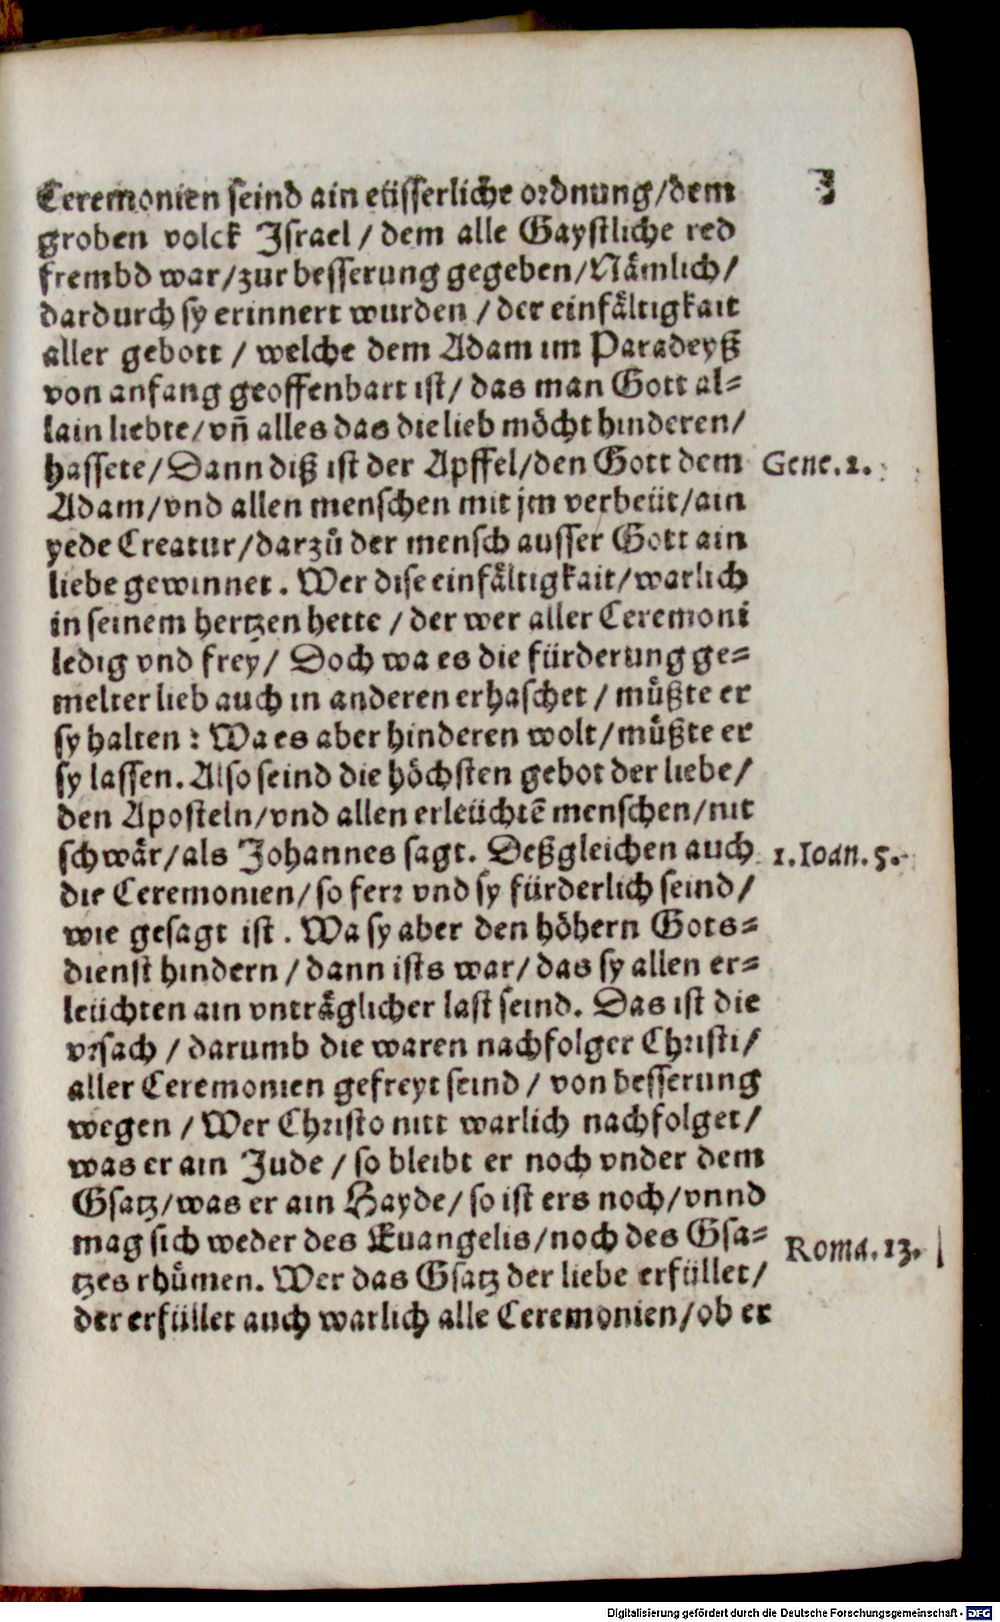 3
Ceremonien seind ain eüsserliche ordnung/dem
groben volck Israel / dem alle Gaystliche red
frembd war/zur besserung gegeben/Nämlich/
dardurch sy erinnert wurden / der einfältigkait
aller gebott / welche dem Adam im Paradeyß
von anfang geoffenbart ist/ das man Gott al-
lain liebte/vñ alles das die lieb möcht hinderen/
hassete/Dann diß ist der Apffel/den Gott dem
Gene. 2.
Adam/vnd allen menschen mit jm verbeüt/ain
yede Creatur/darzů der mensch ausser Gott ain
liebe gewinnet. Wer dise einfältigkait/warlich
in seinem hertzen hette / der wer aller Ceremoni
ledig vnd frey/ Doch wa es die fürderung ge-
melter lieb auch in anderen erhaschet / müßte er
sy halten : Wa es aber hinderen wolt/müßte er
sy lassen. Also seind die höchsten gebot der liebe/
den Aposteln/vnd allen erleüchtē menschen/nit
schwär/als Johannes sagt. Deßgleichen auch
1. Ioan. 5.
die Ceremonien/so ferr vnd sy fürderlich seind/
wie gesagt ist . Wa sy aber den höhern Gots-
dienst hindern / dann ists war/ das sy allen er-
leüchten ain vnträglicher last seind. Das ist die
vrsach / darumb die waren nachfolger Christi/
aller Ceremonien gefreyt seind / von besserung
wegen / Wer Christo nitt warlich nachfolget/
was er ain Jude / so bleibt er noch vnder dem
Gsatz/was er ain Hayde/ so ist ers noch/vnnd
mag sich weder des Euangelis/noch des Gsa-
Roma. 13.
tzes rhümen. Wer das Gsatz der liebe erfüllet/
der erfüllet auch warlich alle Ceremonien/ob er
Digitalisierung gefördert durch die Deutsche Forschungsgemeinschaft - DFG